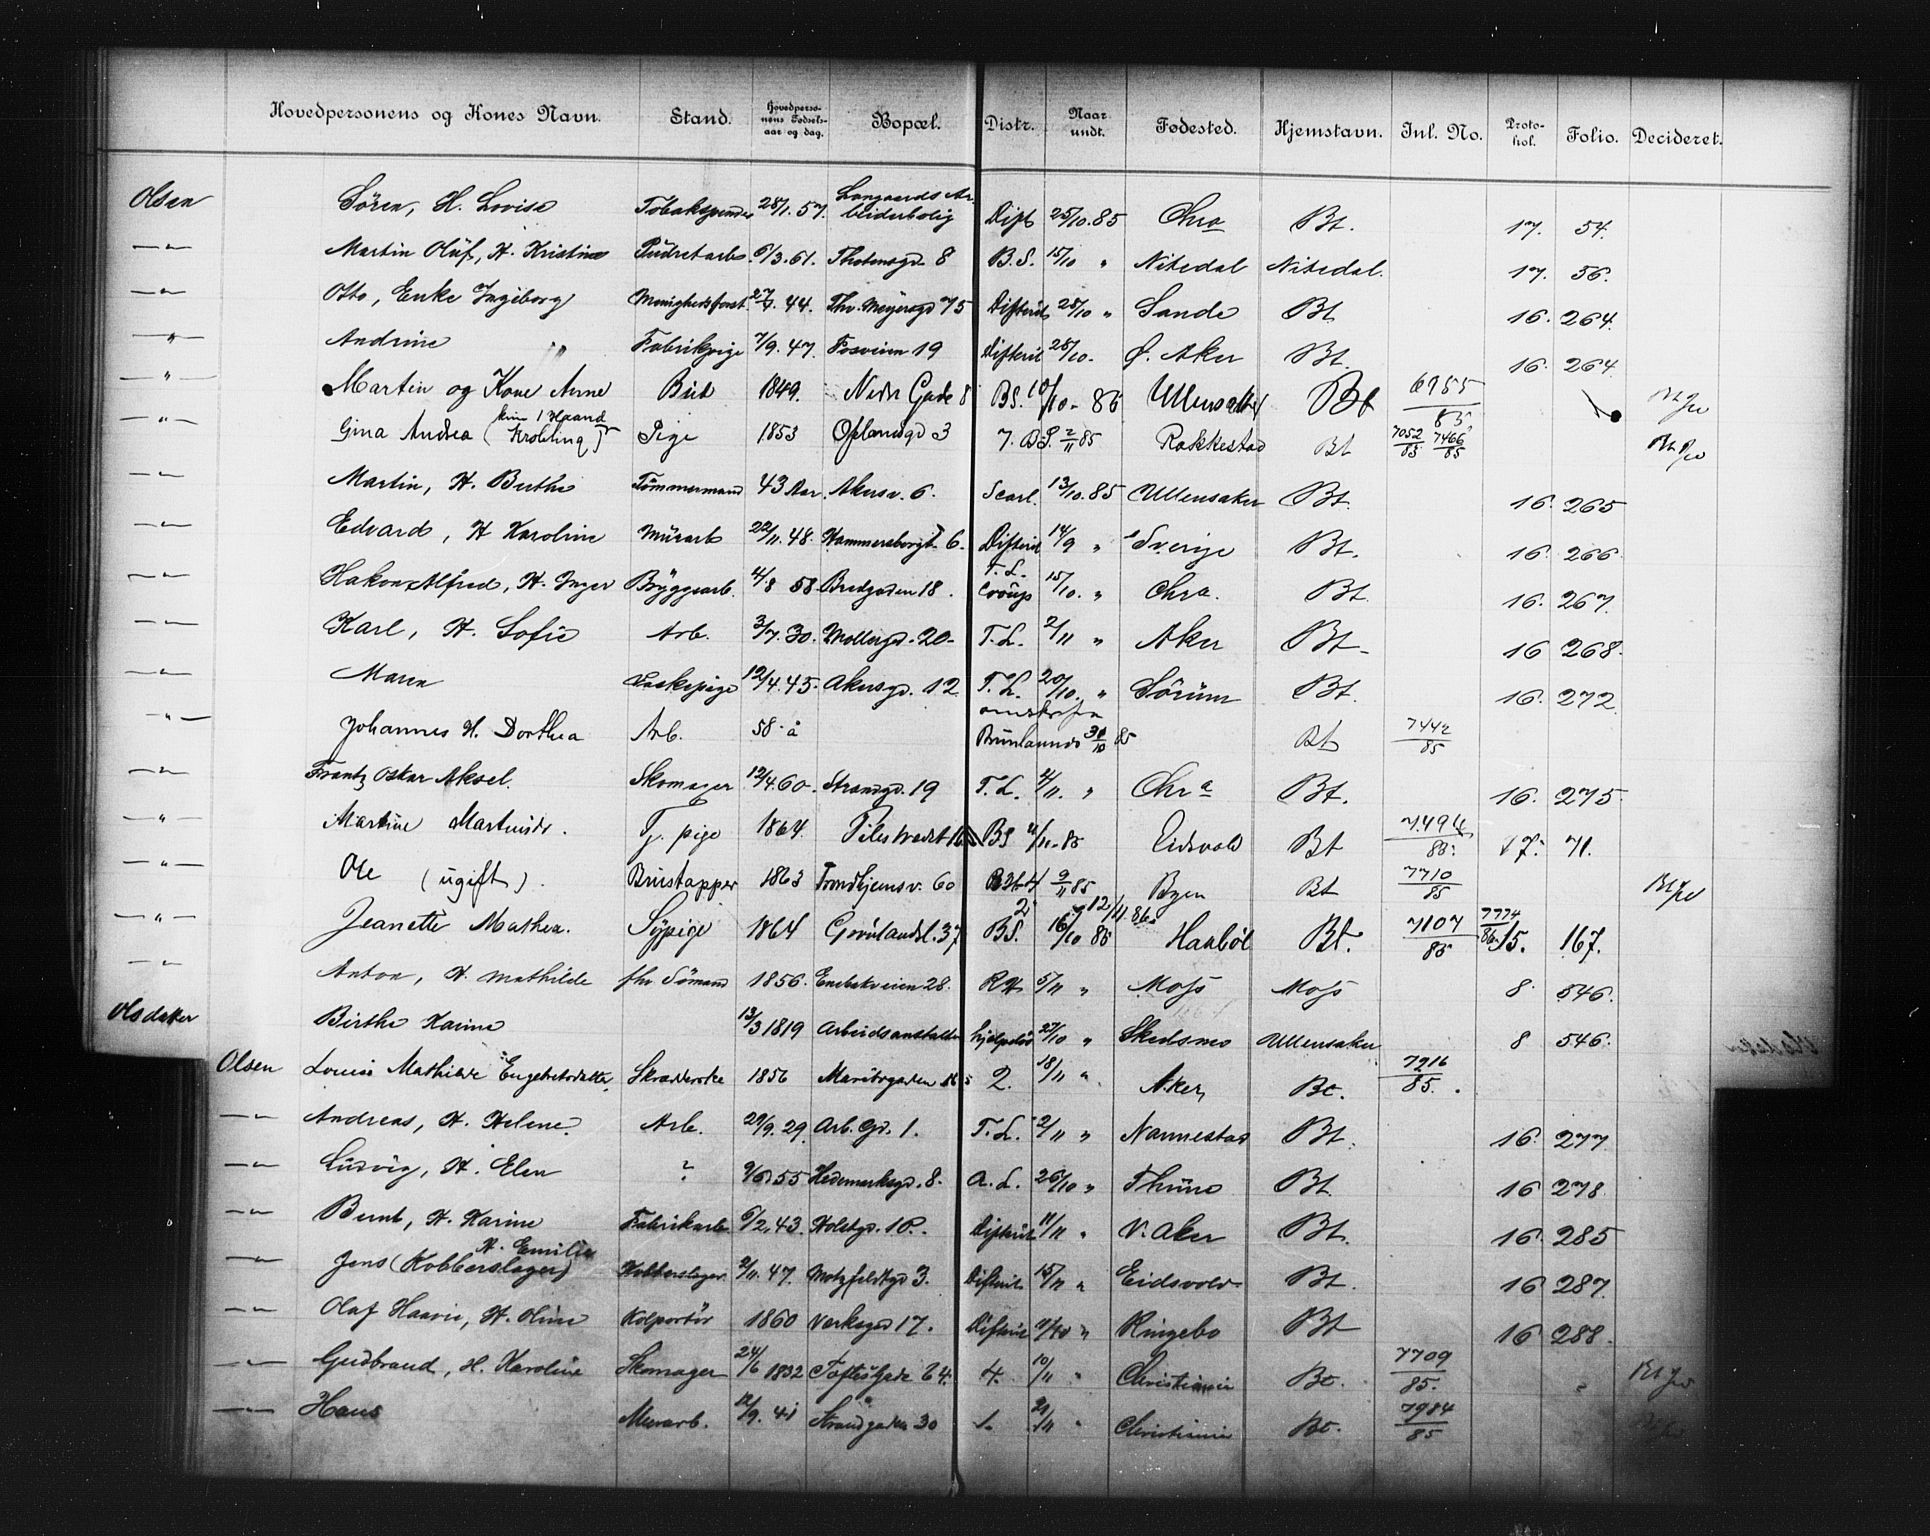 Hovedpersonens og Kones Navn. Stand. Hovedperso-nens Fødsels-aar og dag. Bopæl. Distr. Naar undt. Fødested. Hjemstavn. Inl. No. Proto-kol. Folio. Decideret.
Olsen Sören, H. Lovise 28/1.57. Langaards Ar-beiderbolig Dift 25/10.85 Chra Bt. 17. 54.
—"— Martin Oluf, H. Kristine 6/3.61. Thotensgd. 8 B.S. 15/10 " Nitedal Nitedal. 17. 56.
—"— Otto, Enke Ingeborg 44. Thv. Meyersgd 75 Difterit 28/10 " Sande Bt 16. 264.
—"— Andrine Fabrikpige 7/9.47. Fosveien 19 Difterit 28/10. Ø. Aker Bt. 16. 264.
—"— Martin og Kone Anne Bud 1849. Nedr Gade 8 BS. 10/10- 86 Bt 6955/85
—"— Gina Andrea Pige 1853 Oplandsgd 3 7. BS. 2/11 85 Rakkestad Bt 7052/85 7466/85
—"— Martin, H. Berthe Tömmermand 43 Aar. Akersv. 6. Scarl. 13/10.85 Ullensaker Bt. 16. 265
—"— Edvard, H Karoline Murarb 22/11.48. Hammersborgt. 6. Difterit 14/9 " Sverige Bt. 16. 266.
—"— Hakon Alfred, H. Inger Byggearb. 4/8 58. Bredgaden 18. T.L. Croup 15/10. " Chra. Bt. 16. 267.
—"— Karl, H. Sofie Arb. 3/7.30. Mollergd. 20. T.L. 2/11 " Aker Bt. 16 268.
—"— Maren 12/4.45. Akersgd. 12 T.L. 20/10. " Sörum Bt. 16. 272.
—"— Johannes H. Dorthea Arb. 58 å Brunlaunds 85 Bt 7442/85
—"— Frantz Oskar Aksel. Skomager 12/4.60. Strandgd. 19 T.L. 4/11. " Chra Bt. 16. 275.
—"— Martine Martinsdr. Tj. pige 1864. Pilestrædet BS Eidsvold Bt 7494/85. 17. 71.
—"— Ole (ugift). Brustapper 1863 Trondhjemsv. 60 9/11 85 Byen Bt 7710/85
—"— Jeanette Mathea. Sypige 1864 Grönlandsl. 37 BS. 16/10 85 2 12/11 86. Haabøl Bt. 7107/85 7774/86 15. 167.
—"— Anton, H. Mathilde fhv Sömand 1856. Enebakveien 28. RH 5/11 " Moss Moss 8. 546.
Olsdatter Birthe Karine 13/3 1819 Arbeidsanstalten hjelpelös 27/10 " Skedsmo Ullensaker 8 546.
Olsen Louise Mathilde Engebretsdatter Skrædderske 1856 Maribogaden 2. 18/11 " Aker, Bt. 7216/85.
—"— Andreas, H. Helene. Arb. 29/9.29. Arb. Gd. 1. T.L. 2/11 " Nannestad Bt. 16. 277.
—"— Ludvig, H. Elen ? 9/6 55 Hedemarksgd. 8. A.L. 26/10 " Bt. 16 278.
—"— Bernt, H. Karine Fabrikarb. 6/2.43. Holstgd. 10. Difterit 11/11 " V. Aker Bt. 16. 285
—"— Jens (Kobberslager) H. Emilie Kobberslager 2/11.47. Motzfeldtgd 3. Difterit 15/11 " Eidsvold Bt. 16 287.
—"— Olaf Haavie, H. Oline Kolportör 1860 Verksgd 17. Difterit Ringebo Bt 16 288.
—"— Gudbrand, H. Karoline Skomager 24/6 1832 Toftes Gade 64. 4. 10/11 " Christiania Bt. 7709/85.
—"— Hans Murarb. 12/9.41 Strandgaden 30 " Christiania Bt. 7984/85